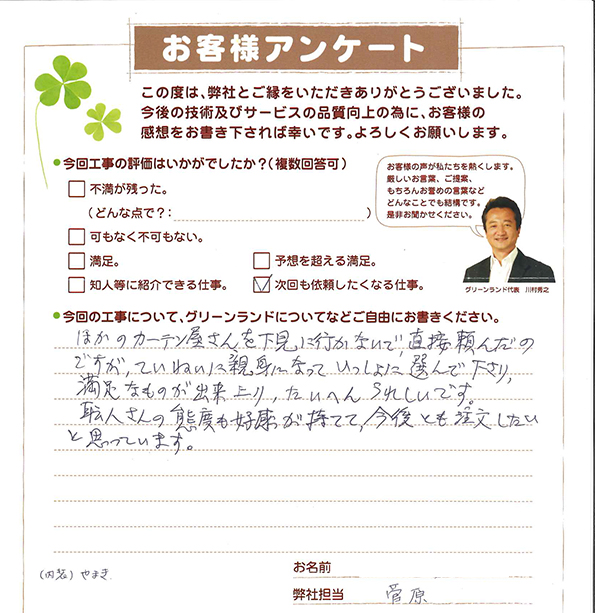 お客様アンケート
この度は、弊社とご縁をいただきありがとうございました。
今後の技術及びサービスの品質向上の為に、お客様の
感想をお書き下されば幸いです。よろしくお願いします。
今回工事の評価はいかがでしたか？(複数回答可)
不満が残った。
(どんな点で？: )
可もなく不可もない。
満足。
予想を超える満足。
知人等に紹介できる仕事。
次回も依頼したくなる仕事。
お客様の声が私たちを熱くします。
厳しいお言葉、ご提案、
もちろんお誉めの言葉など
どんなことでも結構です。
是非お聞かせください。
グリーンランド代表 川村秀之
今回の工事について、グリーンランドについてなどご自由にお書きください。
ほかのカーテン屋さんを下見に行かないで、直接頼んだの
ですが、ていねいに親身になっていっしょに選んで下さり、
満足なものが出来上り、たいへんうれしいです。
職人さんの態度も好感が持てて、今後とも注文したい
と思っています。
(内装) やまき
お名前
弊社担当 菅原